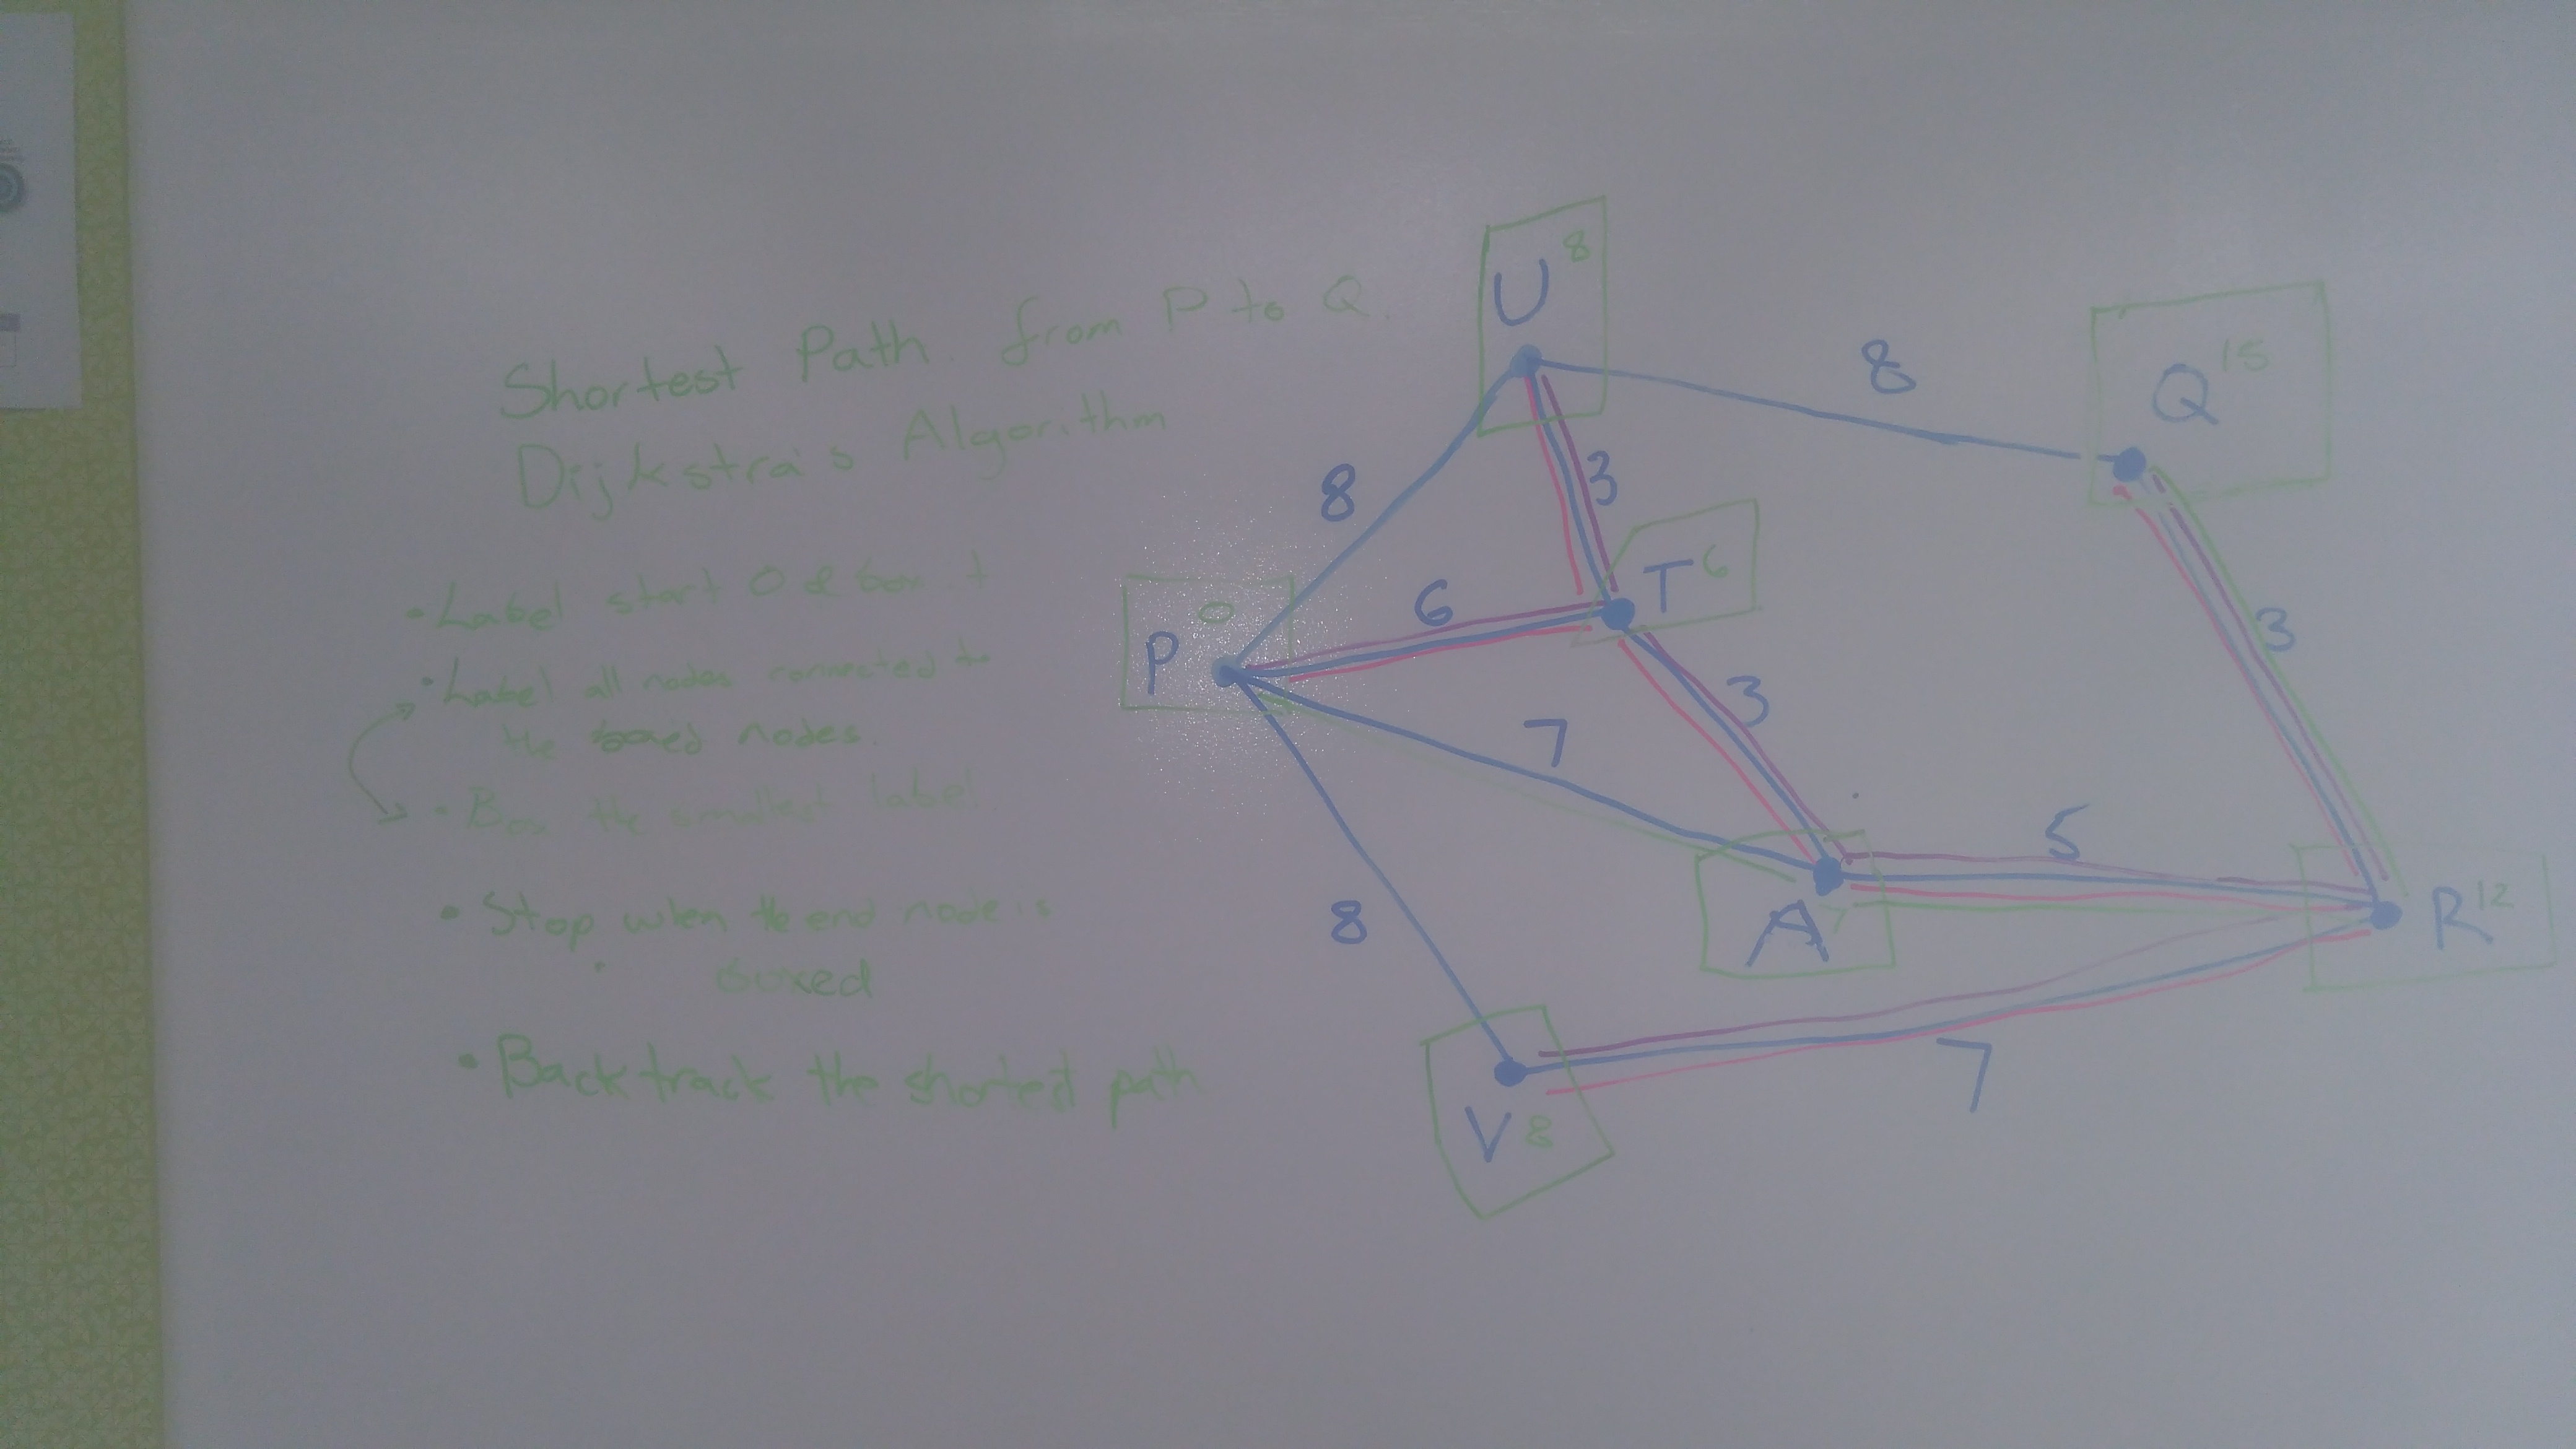 Shortest Path from P to Q.
Dijkstra's Algorithm
• Label start 0 & box it
• Label all nodes connected to
the boxed nodes.
• Box the smallest label
• Stop when the end node is
boxed
• Backtrack the shortest path
U 8
8
Q 15
8
3
T 6
6
0
P
3
3
7
5
A 7
R 12
8
7
V 8